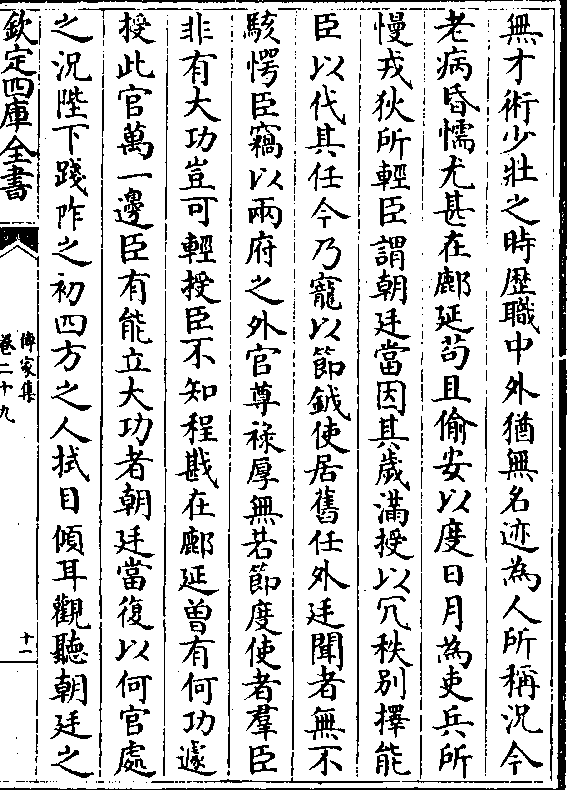 無才術少壯之時歴職中外猶無名迹為人所稱況今
老病昏懦尤甚在鄜延苟且偷安以度日月為吏兵所
慢戎狄所輕臣謂朝廷當因其歲滿授以冗秩别擇能
臣以代其任今乃寵以節鉞使居舊任外廷聞者無不
駭愕臣竊以兩府之外官尊禄厚無若節度使者羣臣
非有大功豈可輕授臣不知程戡在鄜延曽有何功遽
授此官萬一邊臣有能立大功者朝廷當復以何官處
之況陛下踐阼之初四方之人拭目傾耳觀聽朝廷之
欽定四庫全書
傳家集
卷二十九
十一